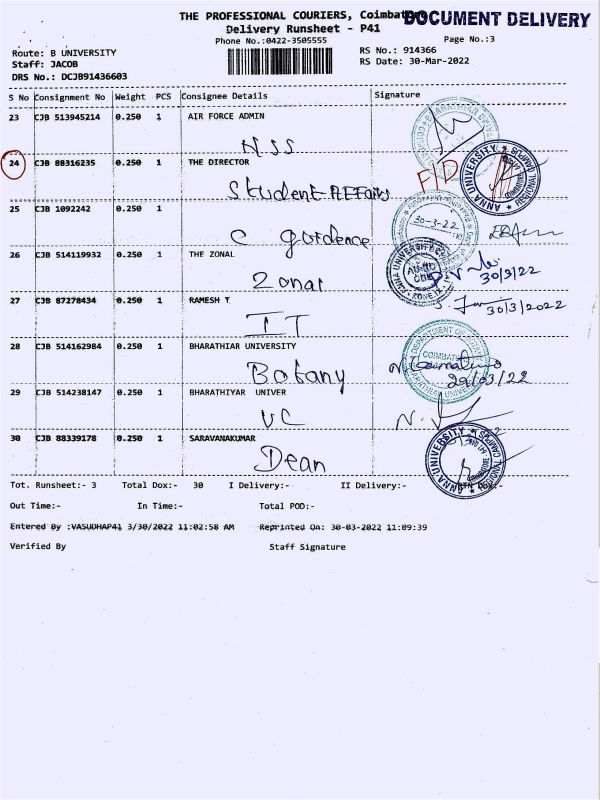 THE PROFESSIONAL COURIERS, Coimbatore
DOCUMENT DELIVERY
Delivery Runsheet - P41
Phone No.:0422-3505555
Page No.:3
Route: B UNIVERSITY
RS No.: 914366
Staff: JACOB
RS Date: 30-Mar-2022
DRS No.: DCJB91436603
S No Consignment No Weight PCS Consignee Details Signature
23 CJB 513945214 0.250 1 AIR FORCE ADMIN
NSS
24 CJB 88316235 0.250 1 THE DIRECTOR
F/D
Student Affairs
ANNA UNIVERSITY REGIONAL CAMPUS COIMBATORE
25 CJB 1092242 0.250 1
30-3-22
C guidence
26 CJB 514119932 0.250 1 THE ZONAL
Zonal
30/3/22
27 CJB 87278434 0.250 1 RAMESH T
30/3/2022
IT
28 CJB 514162984 0.250 1 BHARATHIAR UNIVERSITY
DEPARTMENT OF BOTANY
BHARATHIAR UNIVERSITY
Botany
29/03/22
29 CJB 514238147 0.250 1 BHARATHIYAR UNIVER
VC
30 CJB 88339178 0.250 1 SARAVANAKUMAR
Dean
ANNA UNIVERSITY REGIONAL CAMPUS
Tot. Runsheet:- 3 Total Dox:- 30 I Delivery:- II Delivery:-
Out Time:- In Time:- Total POD:-
Entered By :VASUDHAP41 3/30/2022 11:02:58 AM Reprinted On: 30-03-2022 11:09:39
Verified By Staff Signature